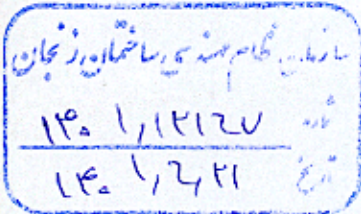 سازمان نظام مهندسی ساختمان زنجان
شماره ۱۴۰۱,۱۲۱۶۷
تاریخ ۱۴۰۱,۶,۲۱